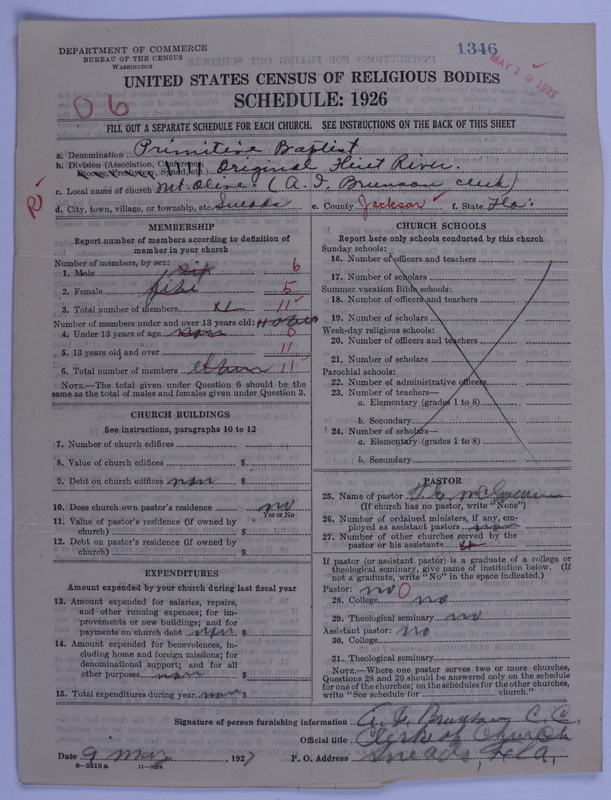 DEPARTMENT OF COMMERCE
BUREAU OF THE CENSUS
WASHINGTON
1346
MAY 19 1927
UNITED STATES CENSUS OF RELIGIOUS BODIES
SCHEDULE: 1926
06
FILL OUT A SEPARATE SCHEDULE FOR EACH CHURCH. SEE INSTRUCTIONS ON THE BACK OF THIS SHEET
a. Denomination Primitive Baptist
b. Division (Association, Conference, Diocese, Presbytery, Synod, etc.) Original Flint River.
c. Local name of church Mt. Olive. (A. F. Brunson clerk)
d. City, town, village, or township, etc. Sneads e. County Jackson f. State Fla.
MEMBERSHIP
Report number of members according to definition of
member in your church
Number of members, by sex:
1. Male six 6
2. Female five 5
3. Total number of members 11
Number of members under and over 13 years old:
4. Under 13 years of age 0
5. 13 years old and over 11
6. Total number of members 11
NOTE.—The total given under Question 6 should be
same as the total of males and females given under Question 3.
CHURCH BUILDINGS
See instructions, paragraphs 10 to 12
7. Number of church edifices
8. Value of church edifices $
9. Debt on church edifices non $
10. Does church own pastor's residence no
Yes or No
11. Value of pastor's residence (if owned by
church) $
12. Debt on pastor's residence (if owned by
church) $
EXPENDITURES
Amount expended by your church during last fiscal year
13. Amount expended for salaries, repairs,
and other running expenses; for im-
provements or new buildings; and for
payments on church debt non $
14. Amount expended for benevolences, in-
cluding home and foreign missions; for
denominational support; and for all
other purposes non $
15. Total expenditures during year non $
CHURCH SCHOOLS
Report here only schools conducted by this church
Sunday schools:
16. Number of officers and teachers
17. Number of scholars
Summer vacation Bible schools:
18. Number of officers and teachers
19. Number of scholars
Week-day religious schools:
20. Number of officers and teachers
21. Number of scholars
Parochial schools:
22. Number of administrative officers
23. Number of teachers—
a. Elementary (grades 1 to 8)
b. Secondary
24. Number of scholars—
a. Elementary (grades 1 to 8)
b. Secondary
PASTOR
25. Name of pastor
(If church has no pastor, write "None")
26. Number of ordained ministers, if any, em-
ployed as assistant pastors
27. Number of other churches served by the
pastor or his assistants
If pastor (or assistant pastor) is a graduate of a college or
theological seminary, give name of institution below. (If
not a graduate, write "No" in the space indicated.)
Pastor: no 0
28. College no
29. Theological seminary no
Assistant pastor: no
30. College
31. Theological seminary
NOTE.—Where one pastor serves two or more churches,
Questions 28 and 29 should be answered only on the schedule
for one of the churches; on the schedules for the other churches,
write "See schedule for church."
Signature of person furnishing information A. F. Brunson, C. C.
Official title Clerk of Church
Date 9 May, 1927 P. O. Address Sneads, Fla.
8—5313a 11—9054